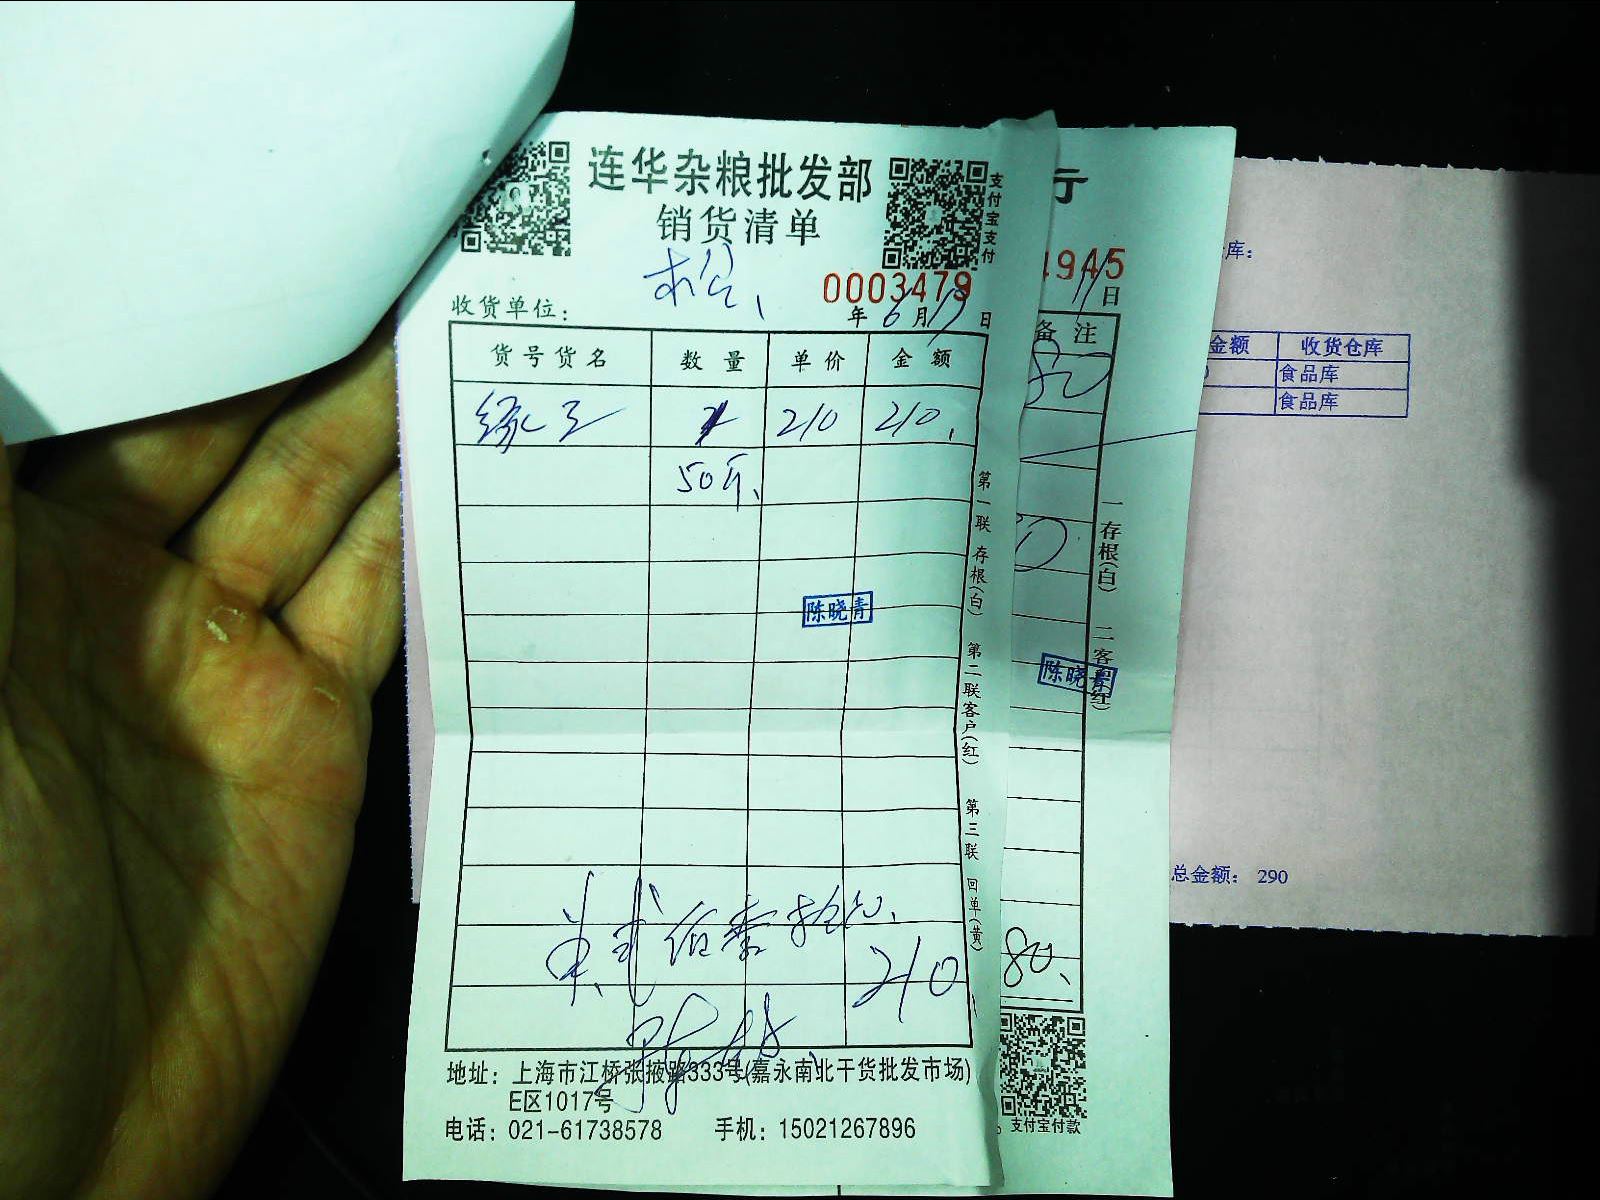 连华杂粮批发部
销货清单
支付宝支付
0003479
收货单位：
年 6 月 17 日
货号货名 数量 单价 金额
210 210
50斤
陈晓青
第一联 存根(白) 第二联 客户(红) 第三联 回单(黄)
210
地址：上海市江桥张掖路333号(嘉永南北干货批发市场)
E区1017号
电话：021-61738578 手机：15021267896
行
4945
日
备注
一存根(白) 二客户(红)
陈晓青
80
支付宝付款
库：
金额 收货仓库
食品库
食品库
总金额： 290